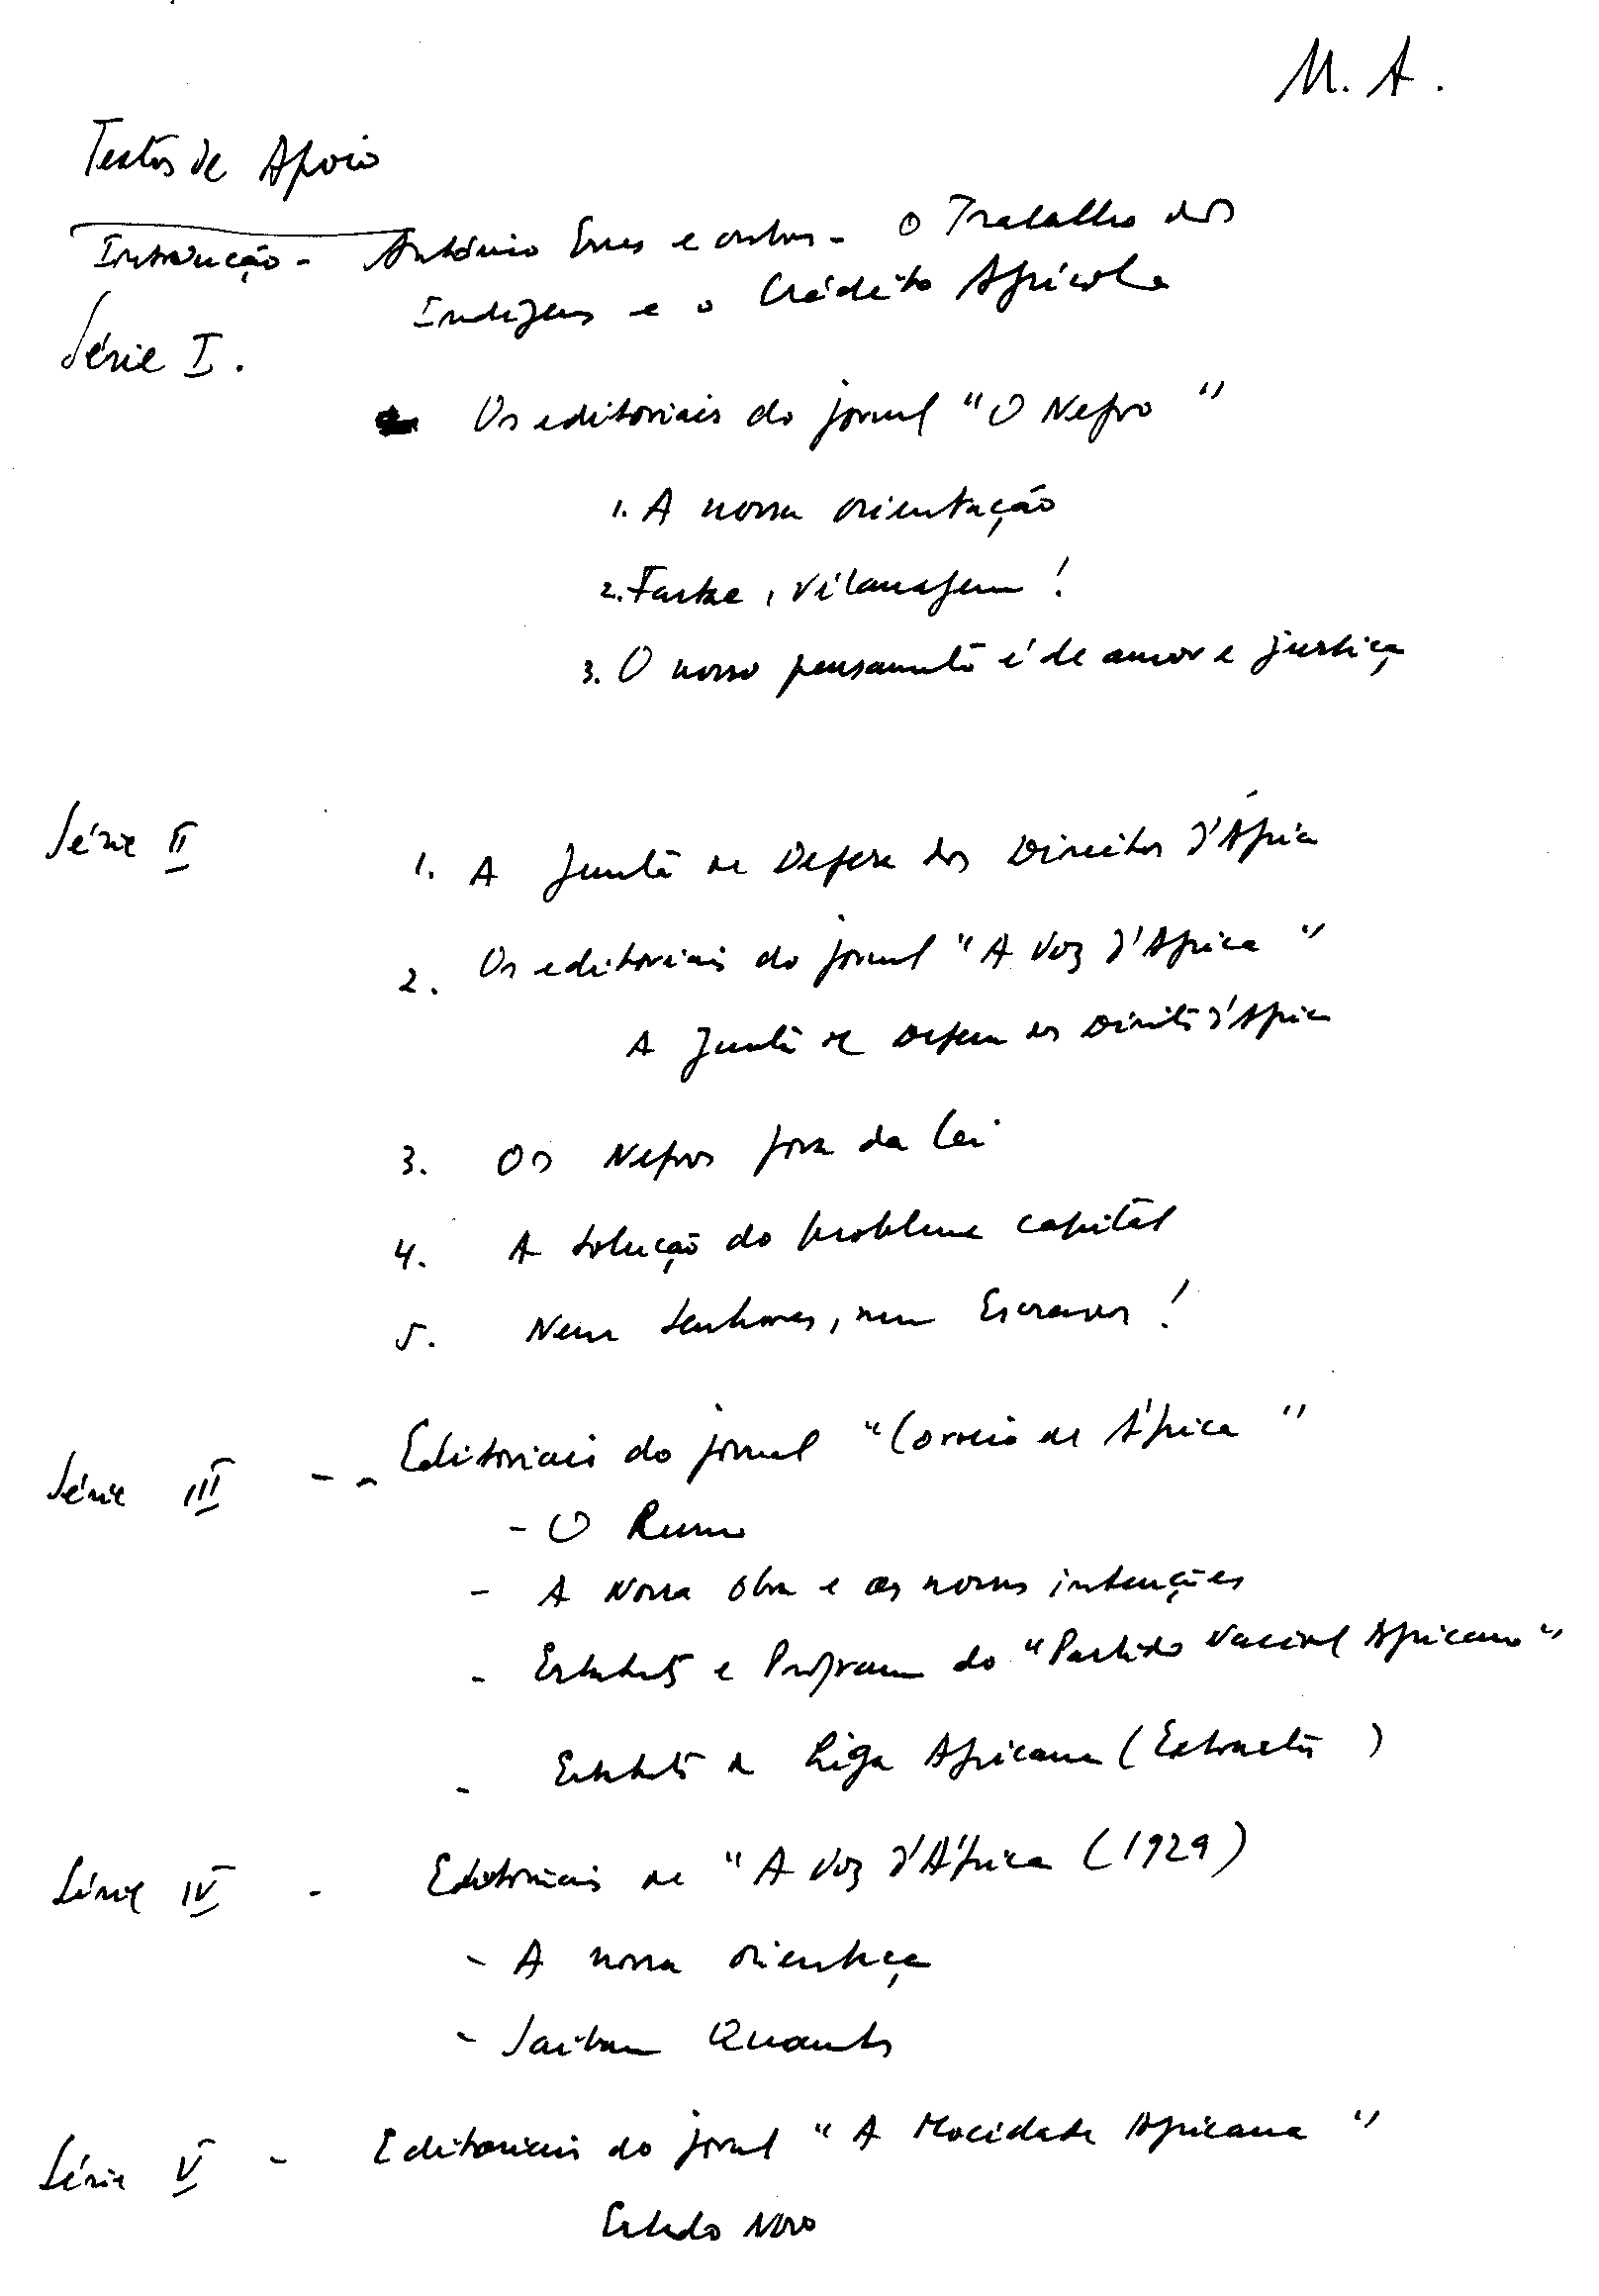 M. A.
Textos de Apoio
Introdução - António Enes e outros - O Trabalho dos
Indígenas e o Crédito Agrícola
Série I.
Os editoriais do jornal "O Negro"
1. A nossa orientação
2. Farsa, vilanagem!
3. O nosso pensamento é de amor e justiça
Série II
1. A Junta de Defesa dos Direitos d'África
2. Os editoriais do jornal "A Voz d'Africa"
A Junta de Defesa dos Direitos d'Africa
3. Os Negros fora da Lei
4. A solução do problema capital
5. Nem Senhores, nem Escravos!
Série III - - Editoriais do jornal "Correio de África"
- O Rumo
- A Nossa Obra e as nossas intenções
- Estatutos e Programa do "Partido Nacional Africano"
- Estatutos da Liga Africana (Extractos)
Série IV - Editoriais de "A Voz d'África (1929)
- A nossa orientação
- Saibam Quantos
Série V - Editoriais do jornal "A Mocidade Africana"
Estado Novo